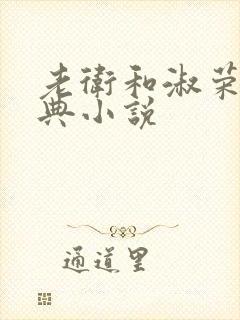 老衛和淑荣
典小説
通道里